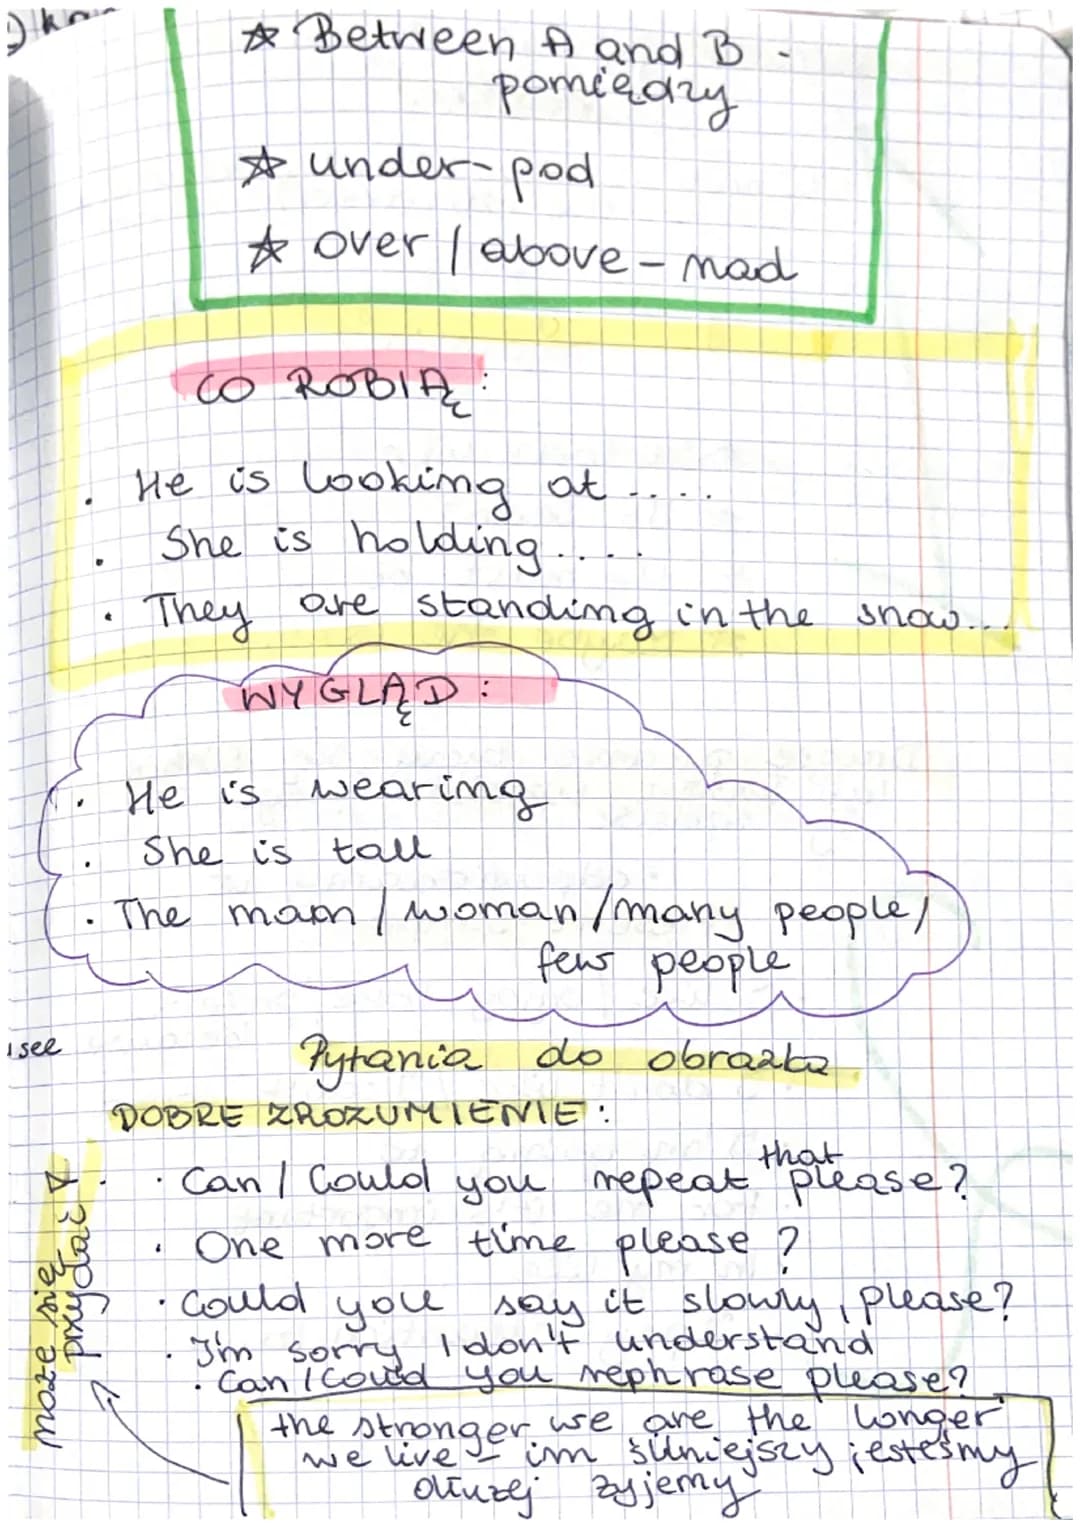 ☆ Between A and B -
pomiędzy
☆ under - pod
☆ over / above - nad
CO ROBIĄ:
· He is looking at ....
· She is holding ....
· They are standing in the snow...
WYGLĄD:
· He is wearing
· She is tall
· The man / woman / many people /
few people
see
Pytania do obrazka
DOBRE ZROZUMIENIE:
· Can / Could you repeat that please?
· One more time please?
· Could you say it slowly, please?
· I'm sorry I don't understand
· Can / Could you rephrase please?
może się
przydać
the stronger we are the longer
we live - im silniejszy jesteśmy
dłużej żyjemy